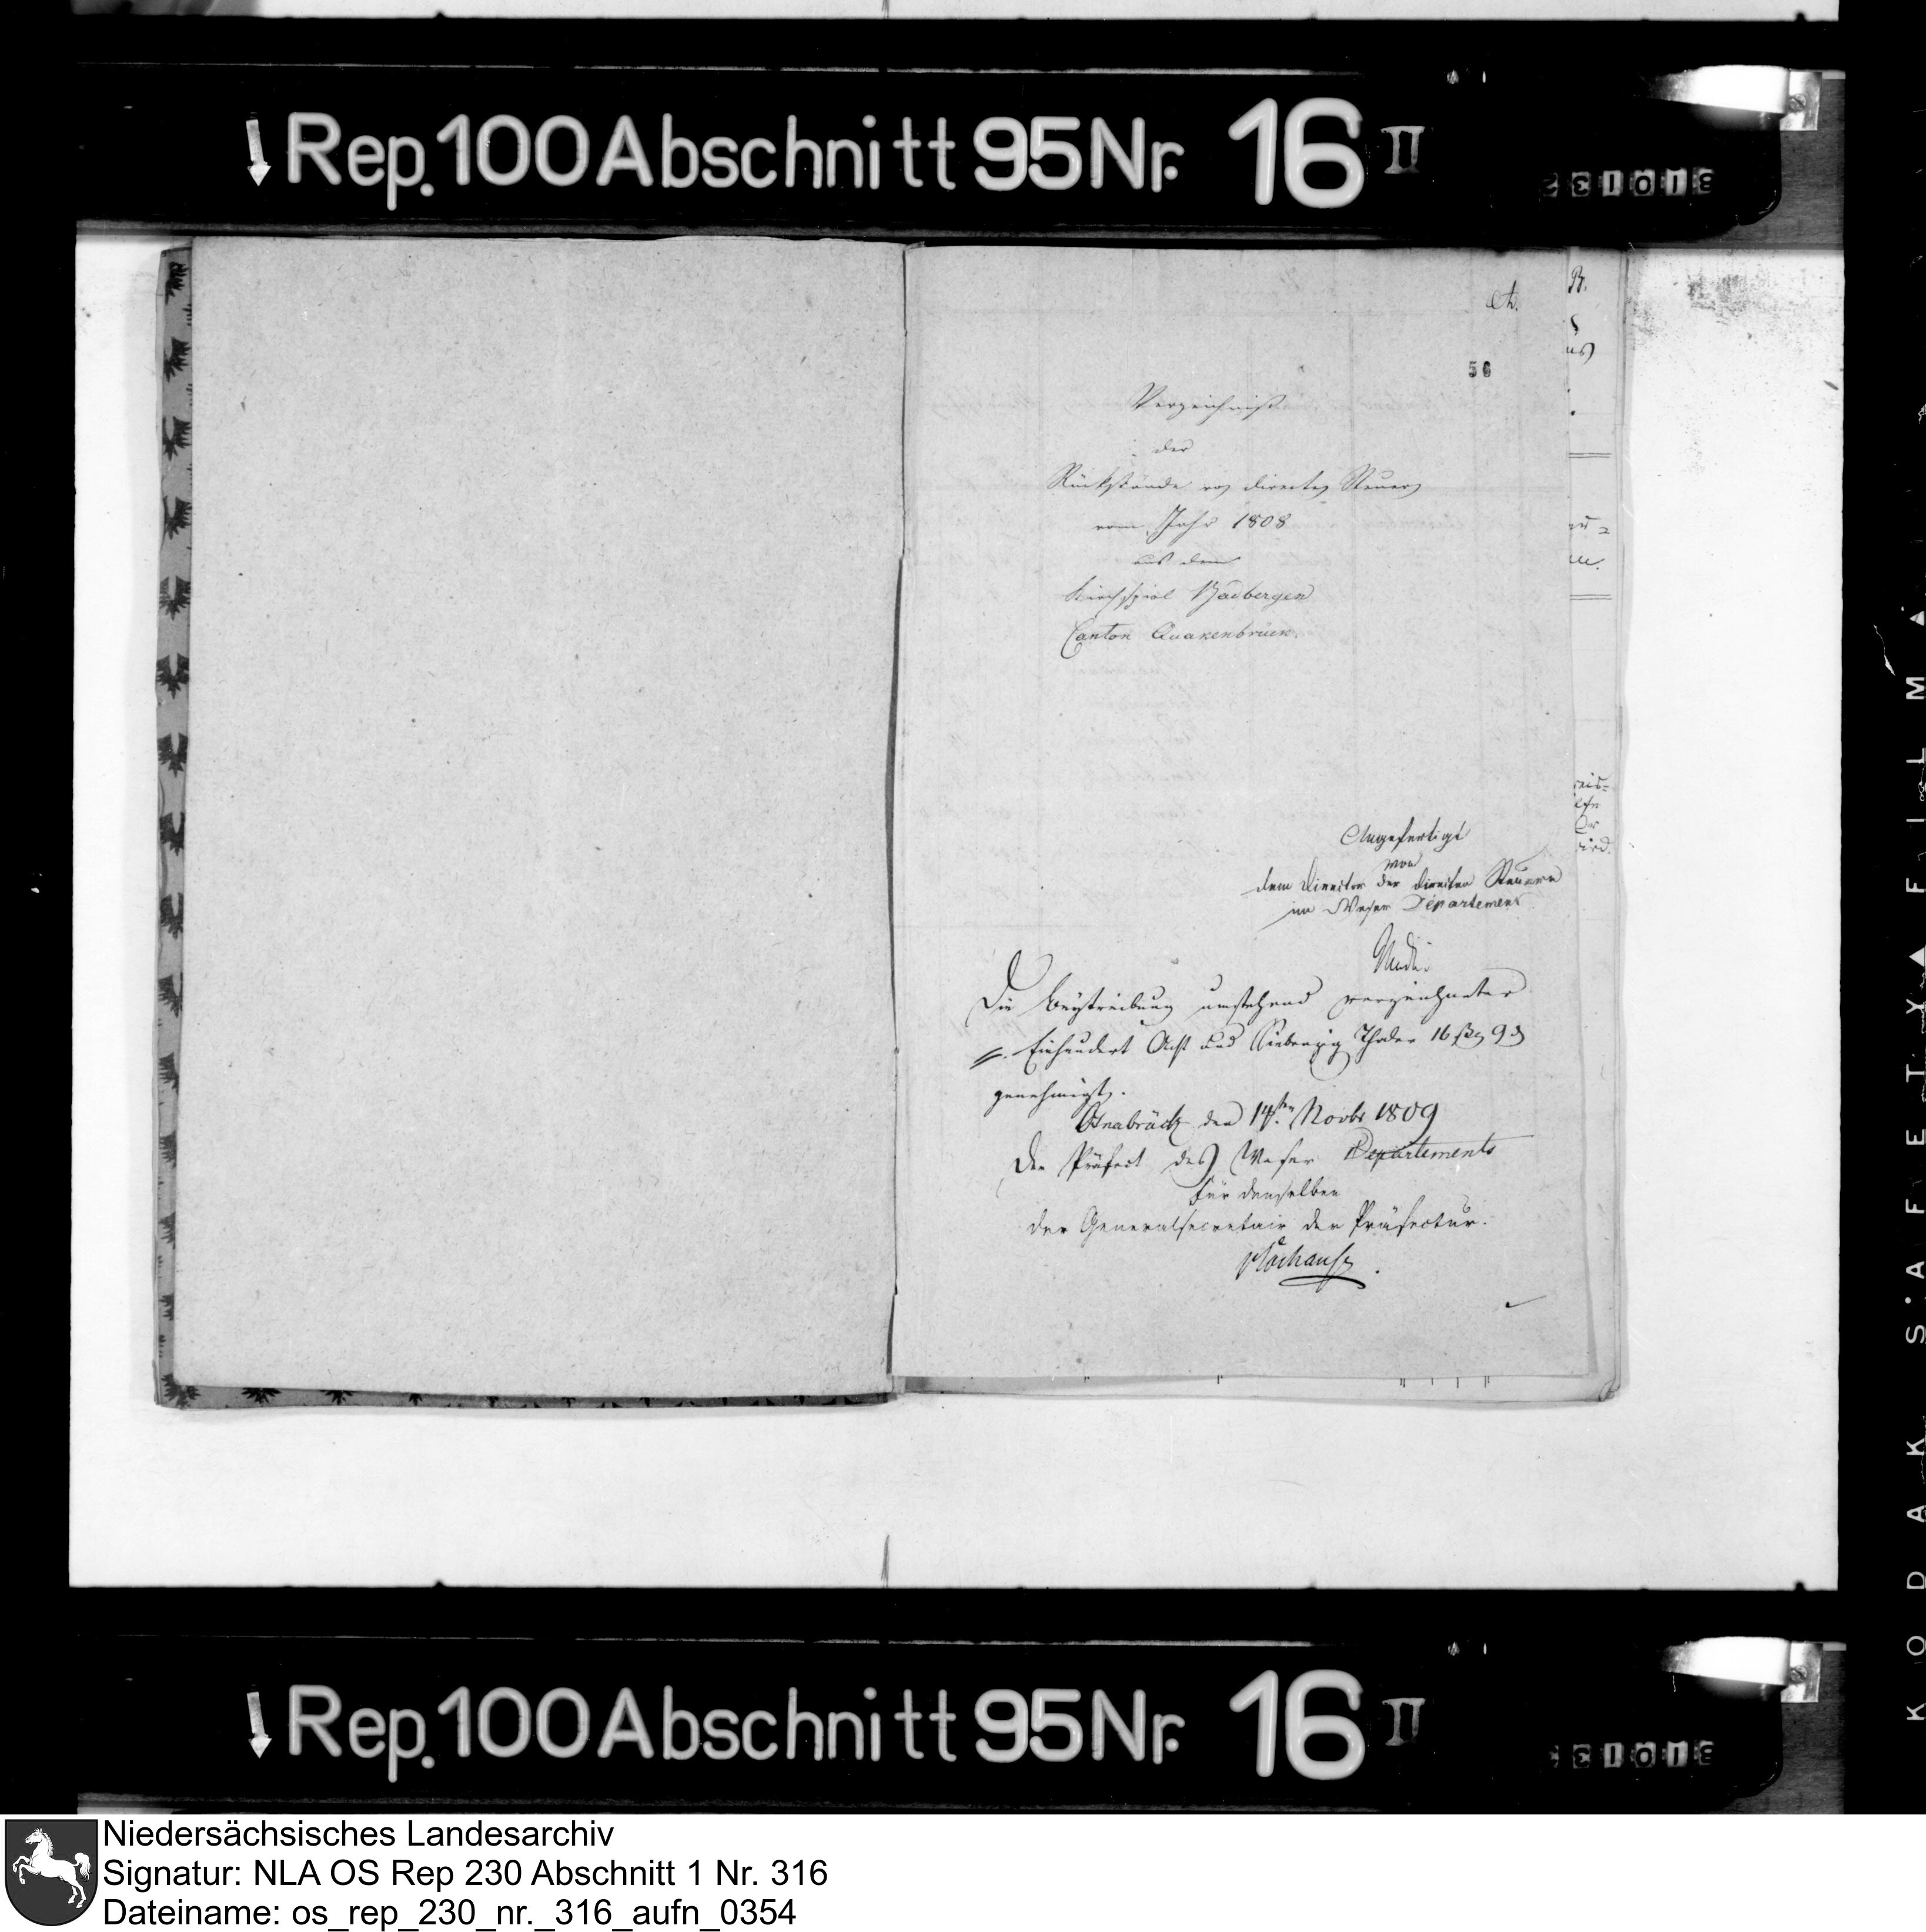 Rep. 100 Abschnitt 95 Nr. 16 II
A.
B.
56
Verzeichniß
der
Rückstände von directen Steuern
vom Jahr 1808
aus dem
Kirchspiel Badbergen
Canton Quakenbrück.
Angefertigt
von
dem Director der directen Steuern
im Weser Département
Die Beytreibung umstehend verzeichneter
Einhundert Acht und Siebenzig Thaler 16 9
genehmigt.
Osnabrück den 14ten Novbr 1809
Der Präfect des Weser Departements
für denselben
der Generalsecretair der Präfectur.
KODAK SAFETY FILM
Rep. 100 Abschnitt 95 Nr. 16 II
Niedersächsisches Landesarchiv
Signatur: NLA OS Rep 230 Abschnitt 1 Nr. 316
Dateiname: os_rep_230_nr._316_aufn_0354